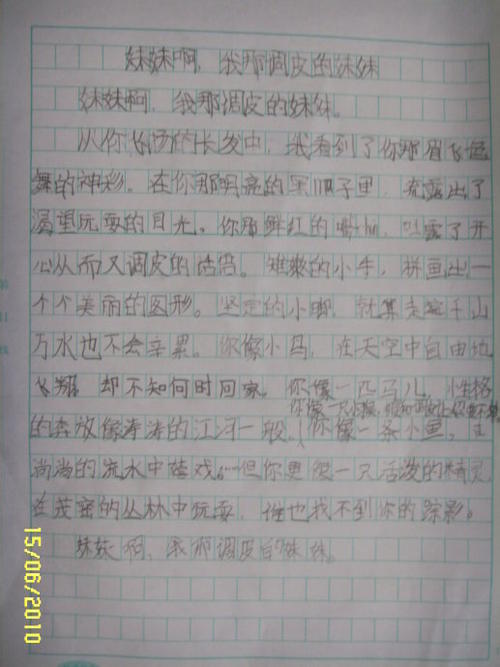 妹妹啊,我那调皮的妹妹
妹妹啊,我那调皮的妹妹。
从你飞扬的长发中,我看到了你那眉飞色
舞的神彩。在你那明亮的黑眼子里,流露出了
渴望玩耍的目光。你那鲜红的嘴,吐露了开
心从而又调皮的话语。雅嫩的小手,拼画出一
个个美丽的图形。坚定的小脚,就算走完千山
万水也不会辛累。你像小鸟,在天空中自由地
飞翔 却不知何时回家。你像一匹马儿,性格
你像一只小猴
的奔放像涛涛的江河一般。你像一条小鱼,在
尚尚的流水中嬉戏…但你更像一只活泼的精灵
在茂密的丛林中玩耍,谁也找不到你的踪影。
妹妹啊,我那调皮的妹妹。
15/06/2010